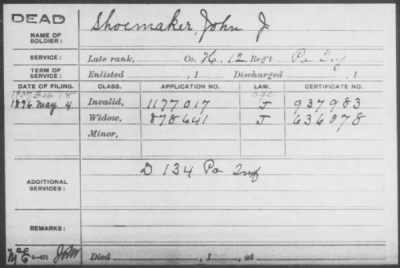 DEAD
NAME OF SOLDIER: Shoemaker, John J
SERVICE: Late rank, Co. H, 12 Reg't Pa Inf
TERM OF SERVICE: Enlisted , 1 Discharged , 1
DATE OF FILING. CLASS. APPLICATION NO. LAW. CERTIFICATE NO.
1896 May 4 Invalid, 1177017 J 937983
Widow, 878641 J 636078
Minor,
ADDITIONAL SERVICES: D 134 Pa Inf
REMARKS:
Died , 1 , at